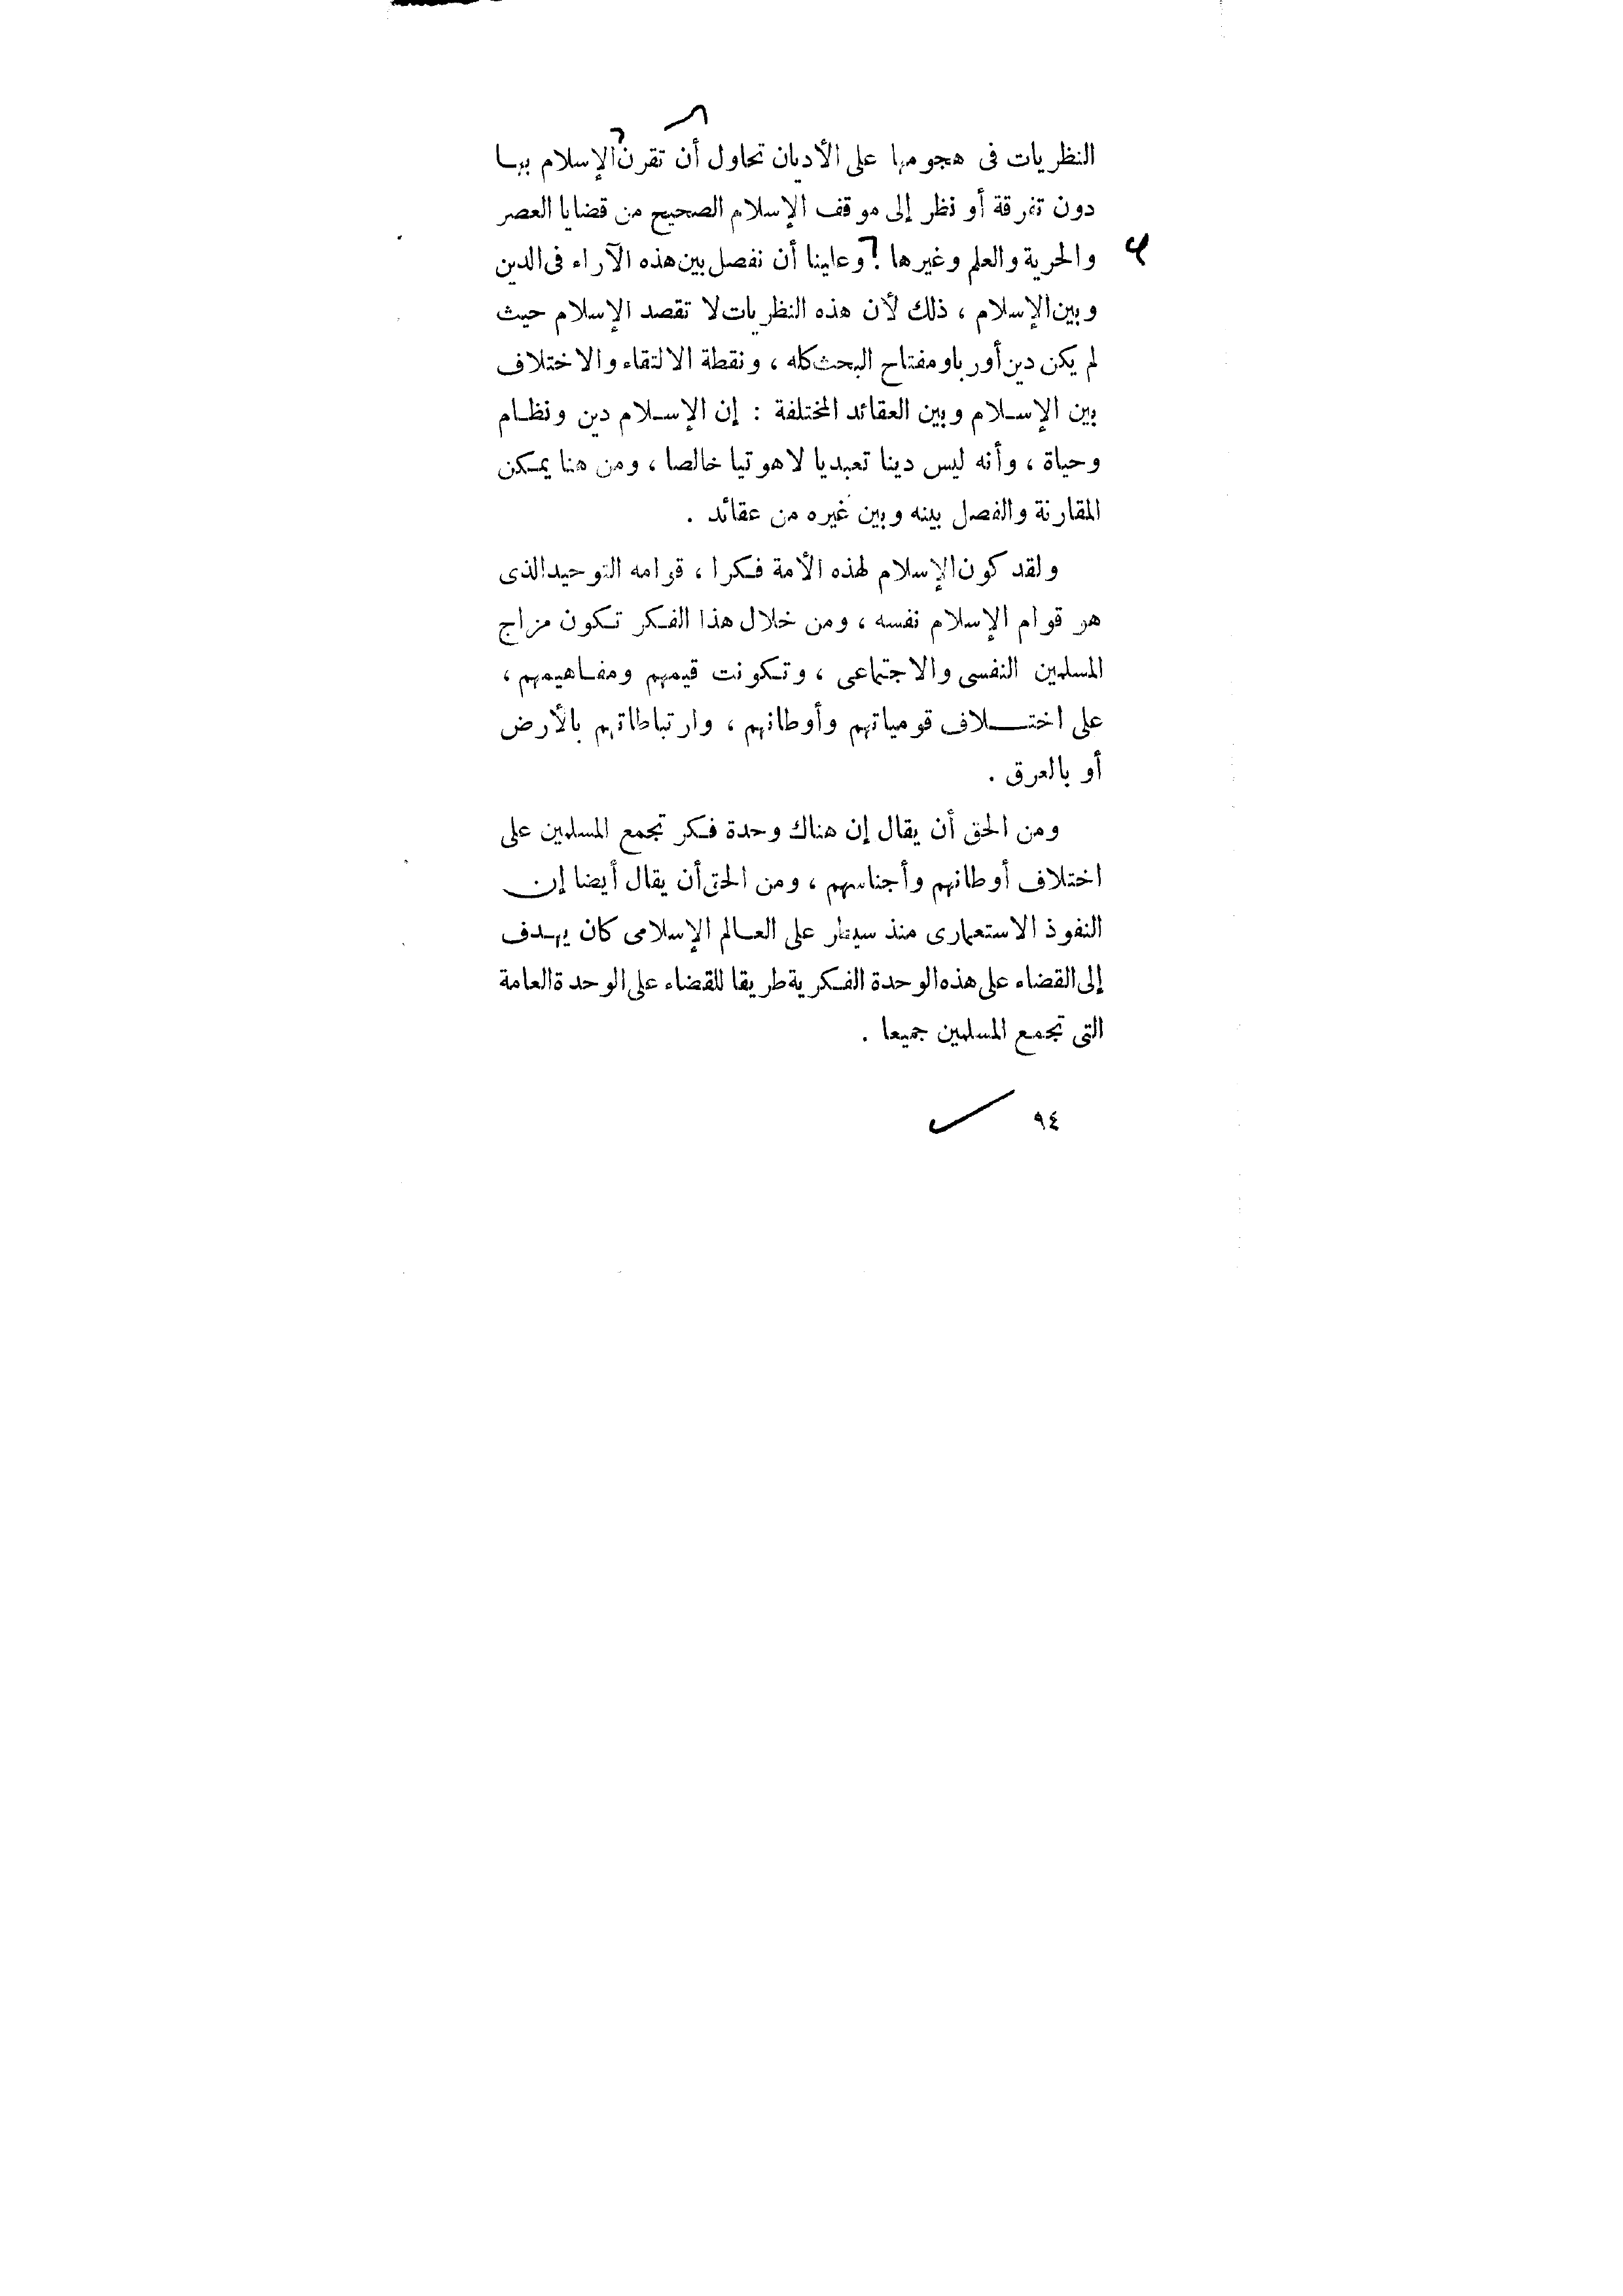 النظريات فى هجومها على الأديان تحاول أن تقرن الإسلام بهـا
دون تفرقة أو نظر إلى موقف الإسلام الصحيح من قضايا العصر
والحرية والعلم وغيرها . وعلينا أن نفصل بين هذه الآراء فى الدين
وبين الإسلام ، ذلك لأن هذه النظريات لا تقصد الإسلام حيث
لم يكن دين أوربا ومفتاح البحث كله ، ونقطة الالتقاء والاختلاف
بين الإسـلام وبين العقائد المختلفة : إن الإسـلام دين ونظـام
وحياة ، وأنه ليس دينا تعبديا لاهوتيا خالصا ، ومن هنا يمـكن
المقارنة والفصل بينه وبين غيره من عقائد .
ولقد كون الإسلام لهذه الأمة فـكرا ، قوامه التوحيد الذى
هو قوام الإسلام نفسه ، ومن خلال هذا الفـكر تـكون مزاج
المسلمين النفسى والاجتماعى ، وتـكونت قيمهم ومفـاهيمهم ،
على اختـــلاف قومياتهم وأوطانهم ، وارتباطاتهم بالأرض
أو بالعرق .
ومن الحق أن يقال إن هناك وحدة فـكر تجمع المسلمين على
اختلاف أوطانهم وأجناسهم ، ومن الحق أن يقال أيضا إن
النفوذ الاستعمارى منذ سيطر على العـالم الإسلامى كان يهـدف
إلى القضاء على هذه الوحدة الفـكرية طريقا للقضاء على الوحدة العامة
التى تجمع المسلمين جميعا .
٩٤